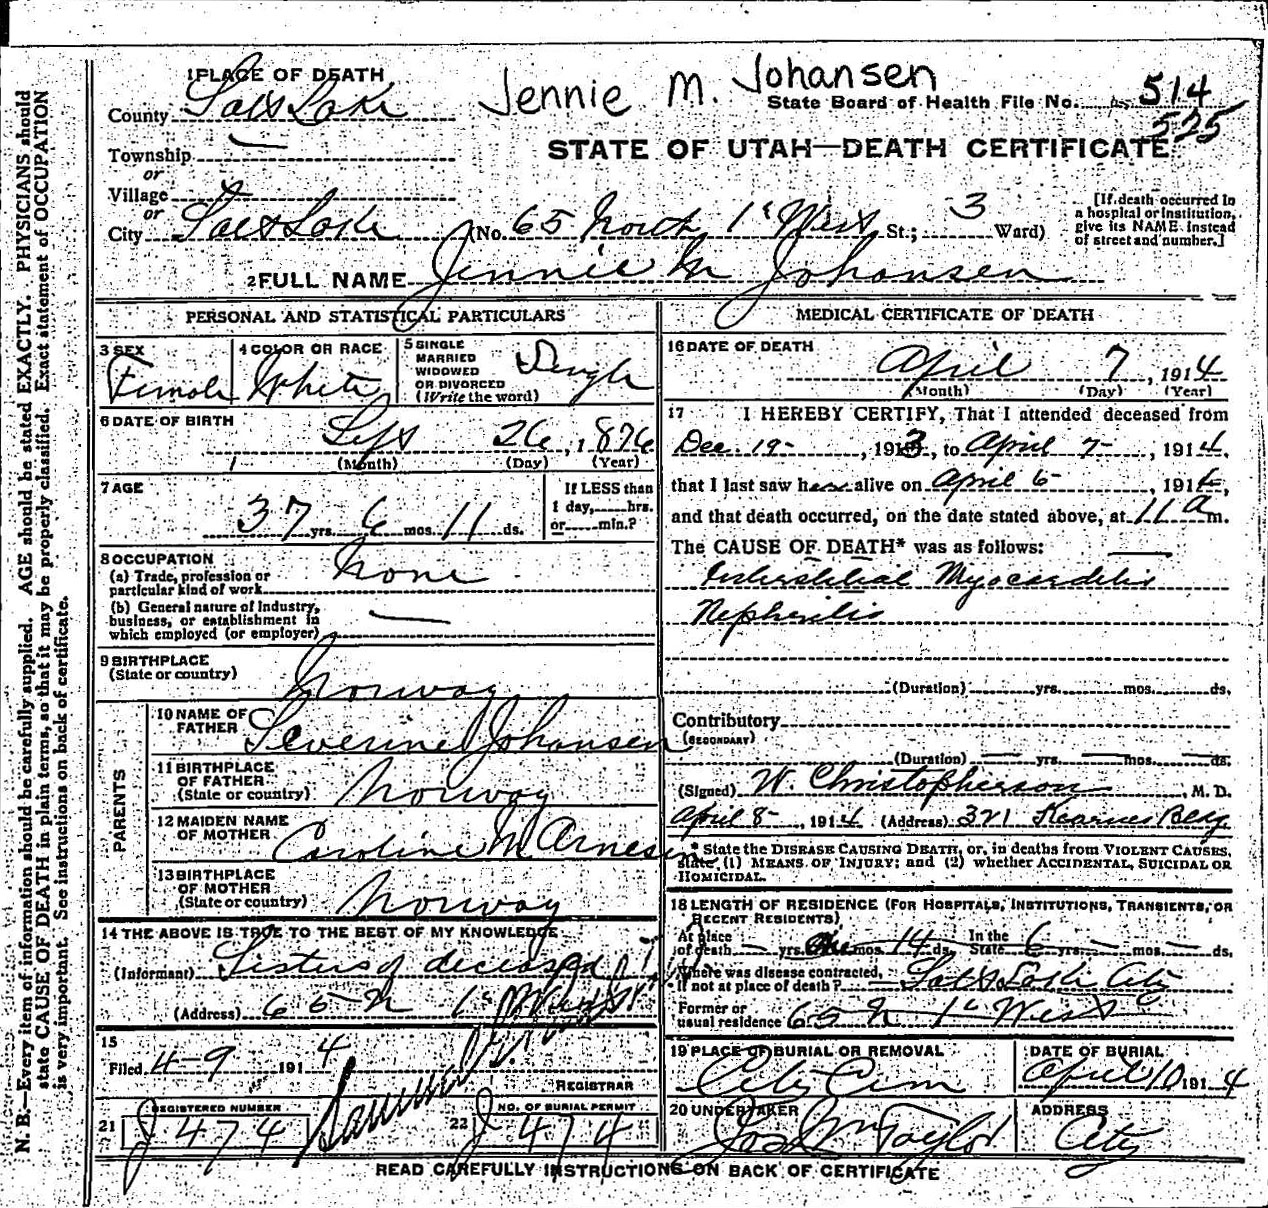 N. B.—Every item of information should be carefully supplied. AGE should be stated EXACTLY. PHYSICIANS should
state CAUSE OF DEATH in plain terms, so that it may be properly classified. Exact statement of OCCUPATION
is very important. See instructions on back of certificate.
1 PLACE OF DEATH
Jennie M. Johansen
County Salt Lake
State Board of Health File No. 514
525
STATE OF UTAH—DEATH CERTIFICATE
Township —
or
Village
or
City Salt Lake (No. 65 North 1st West St.; 3 Ward)
[If death occurred in
a hospital or institution,
give its NAME instead
of street and number.]
2 FULL NAME Jennie M Johansen
PERSONAL AND STATISTICAL PARTICULARS
3 SEX
Female
4 COLOR OR RACE
White
5 SINGLE
MARRIED
WIDOWED
OR DIVORCED
(Write the word)
Single
6 DATE OF BIRTH
Sept 26, 1876
(Month) (Day) (Year)
7 AGE
37 yrs. 6 mos. 11 ds.
If LESS than
1 day, hrs.
or min.?
8 OCCUPATION
(a) Trade, profession or
particular kind of work None
(b) General nature of Industry,
business, or establishment in
which employed (or employer) —
9 BIRTHPLACE
(State or country) Norway
PARENTS
10 NAME OF
FATHER Severine Johansen
11 BIRTHPLACE
OF FATHER
(State or country) Norway
12 MAIDEN NAME
OF MOTHER Caroline M Arnesen
13 BIRTHPLACE
OF MOTHER
(State or country) Norway
14 THE ABOVE IS TRUE TO THE BEST OF MY KNOWLEDGE
(Informant) Sister of deceased
(Address) 65 N 1st West St
15
Filed 4-9 1914
REGISTRAR
21 REGISTERED NUMBER
J 474
22 NO. OF BURIAL PERMIT
J 474
MEDICAL CERTIFICATE OF DEATH
16 DATE OF DEATH
April 7, 1914
(Month) (Day) (Year)
17 I HEREBY CERTIFY, That I attended deceased from
Dec. 19-, 1913, to April 7-, 1914,
that I last saw her alive on April 6-, 1914,
and that death occurred, on the date stated above, at 11 a m.
The CAUSE OF DEATH* was as follows:
Interstitial Myocarditis
Nephritis
(Duration) yrs. mos. ds.
Contributory
(SECONDARY)
(Duration) — yrs. — mos. — ds.
(Signed) W. Christopherson, M. D.
April 8-, 1914 (Address) 321 Kearns Bldg
* State the DISEASE CAUSING DEATH, or, in deaths from VIOLENT CAUSES,
state (1) MEANS OF INJURY; and (2) whether ACCIDENTAL, SUICIDAL OR
HOMICIDAL.
18 LENGTH OF RESIDENCE (FOR HOSPITALS, INSTITUTIONS, TRANSIENTS, OR
RECENT RESIDENTS)
At place
of death — yrs. mos. 14 ds. In the
State 6 yrs. — mos. — ds.
Where was disease contracted,
if not at place of death? Salt Lake City
Former or
usual residence 65 N 1st West
19 PLACE OF BURIAL OR REMOVAL
City Cem
DATE OF BURIAL
April 10 1914
20 UNDERTAKER
Jos Wm Taylor
ADDRESS
City
READ CAREFULLY INSTRUCTIONS ON BACK OF CERTIFICATE